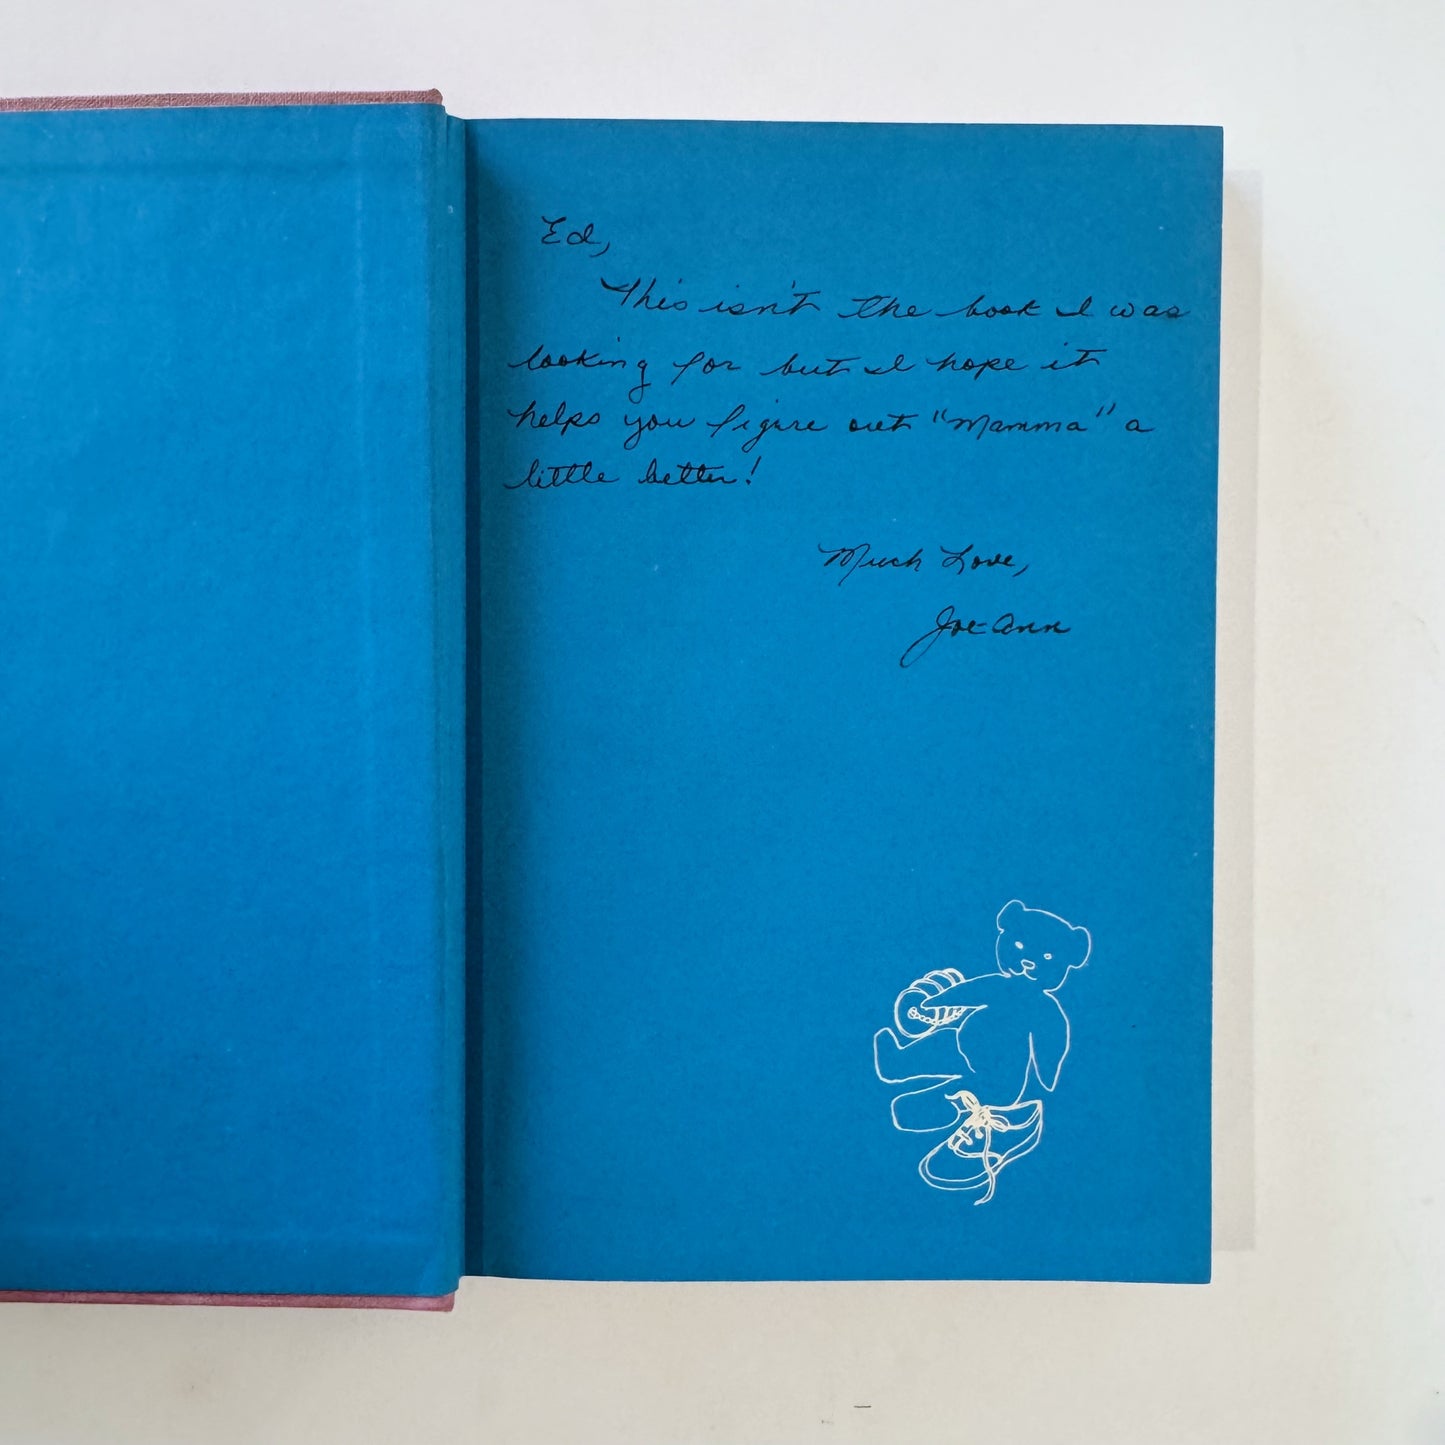 Ed,
This isn't the book I was
looking for but I hope it
helps you figure out "Mamma" a
little better!
Much Love,
Joe-Ann